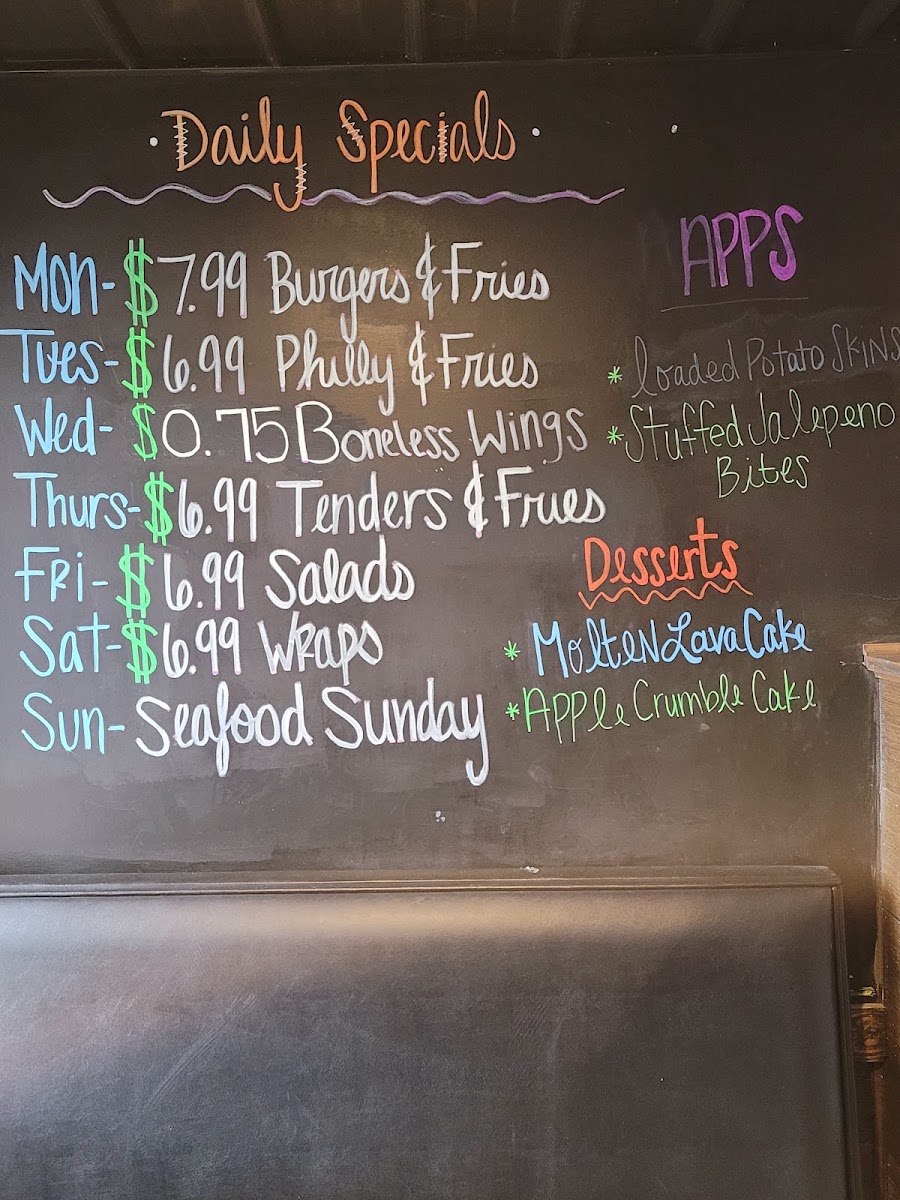 Daily Specials
Mon- $7.99 Burgers & Fries
Tues- $6.99 Philly & Fries
Wed- $0.75 Boneless Wings
Thurs- $6.99 Tenders & Fries
Fri- $6.99 Salads
Sat- $6.99 Wraps
Sun- Seafood Sunday
APPS
* Loaded Potato Skins
* Stuffed Jalepeno
Bites
Desserts
* Molten Lava Cake
* Apple Crumble Cake